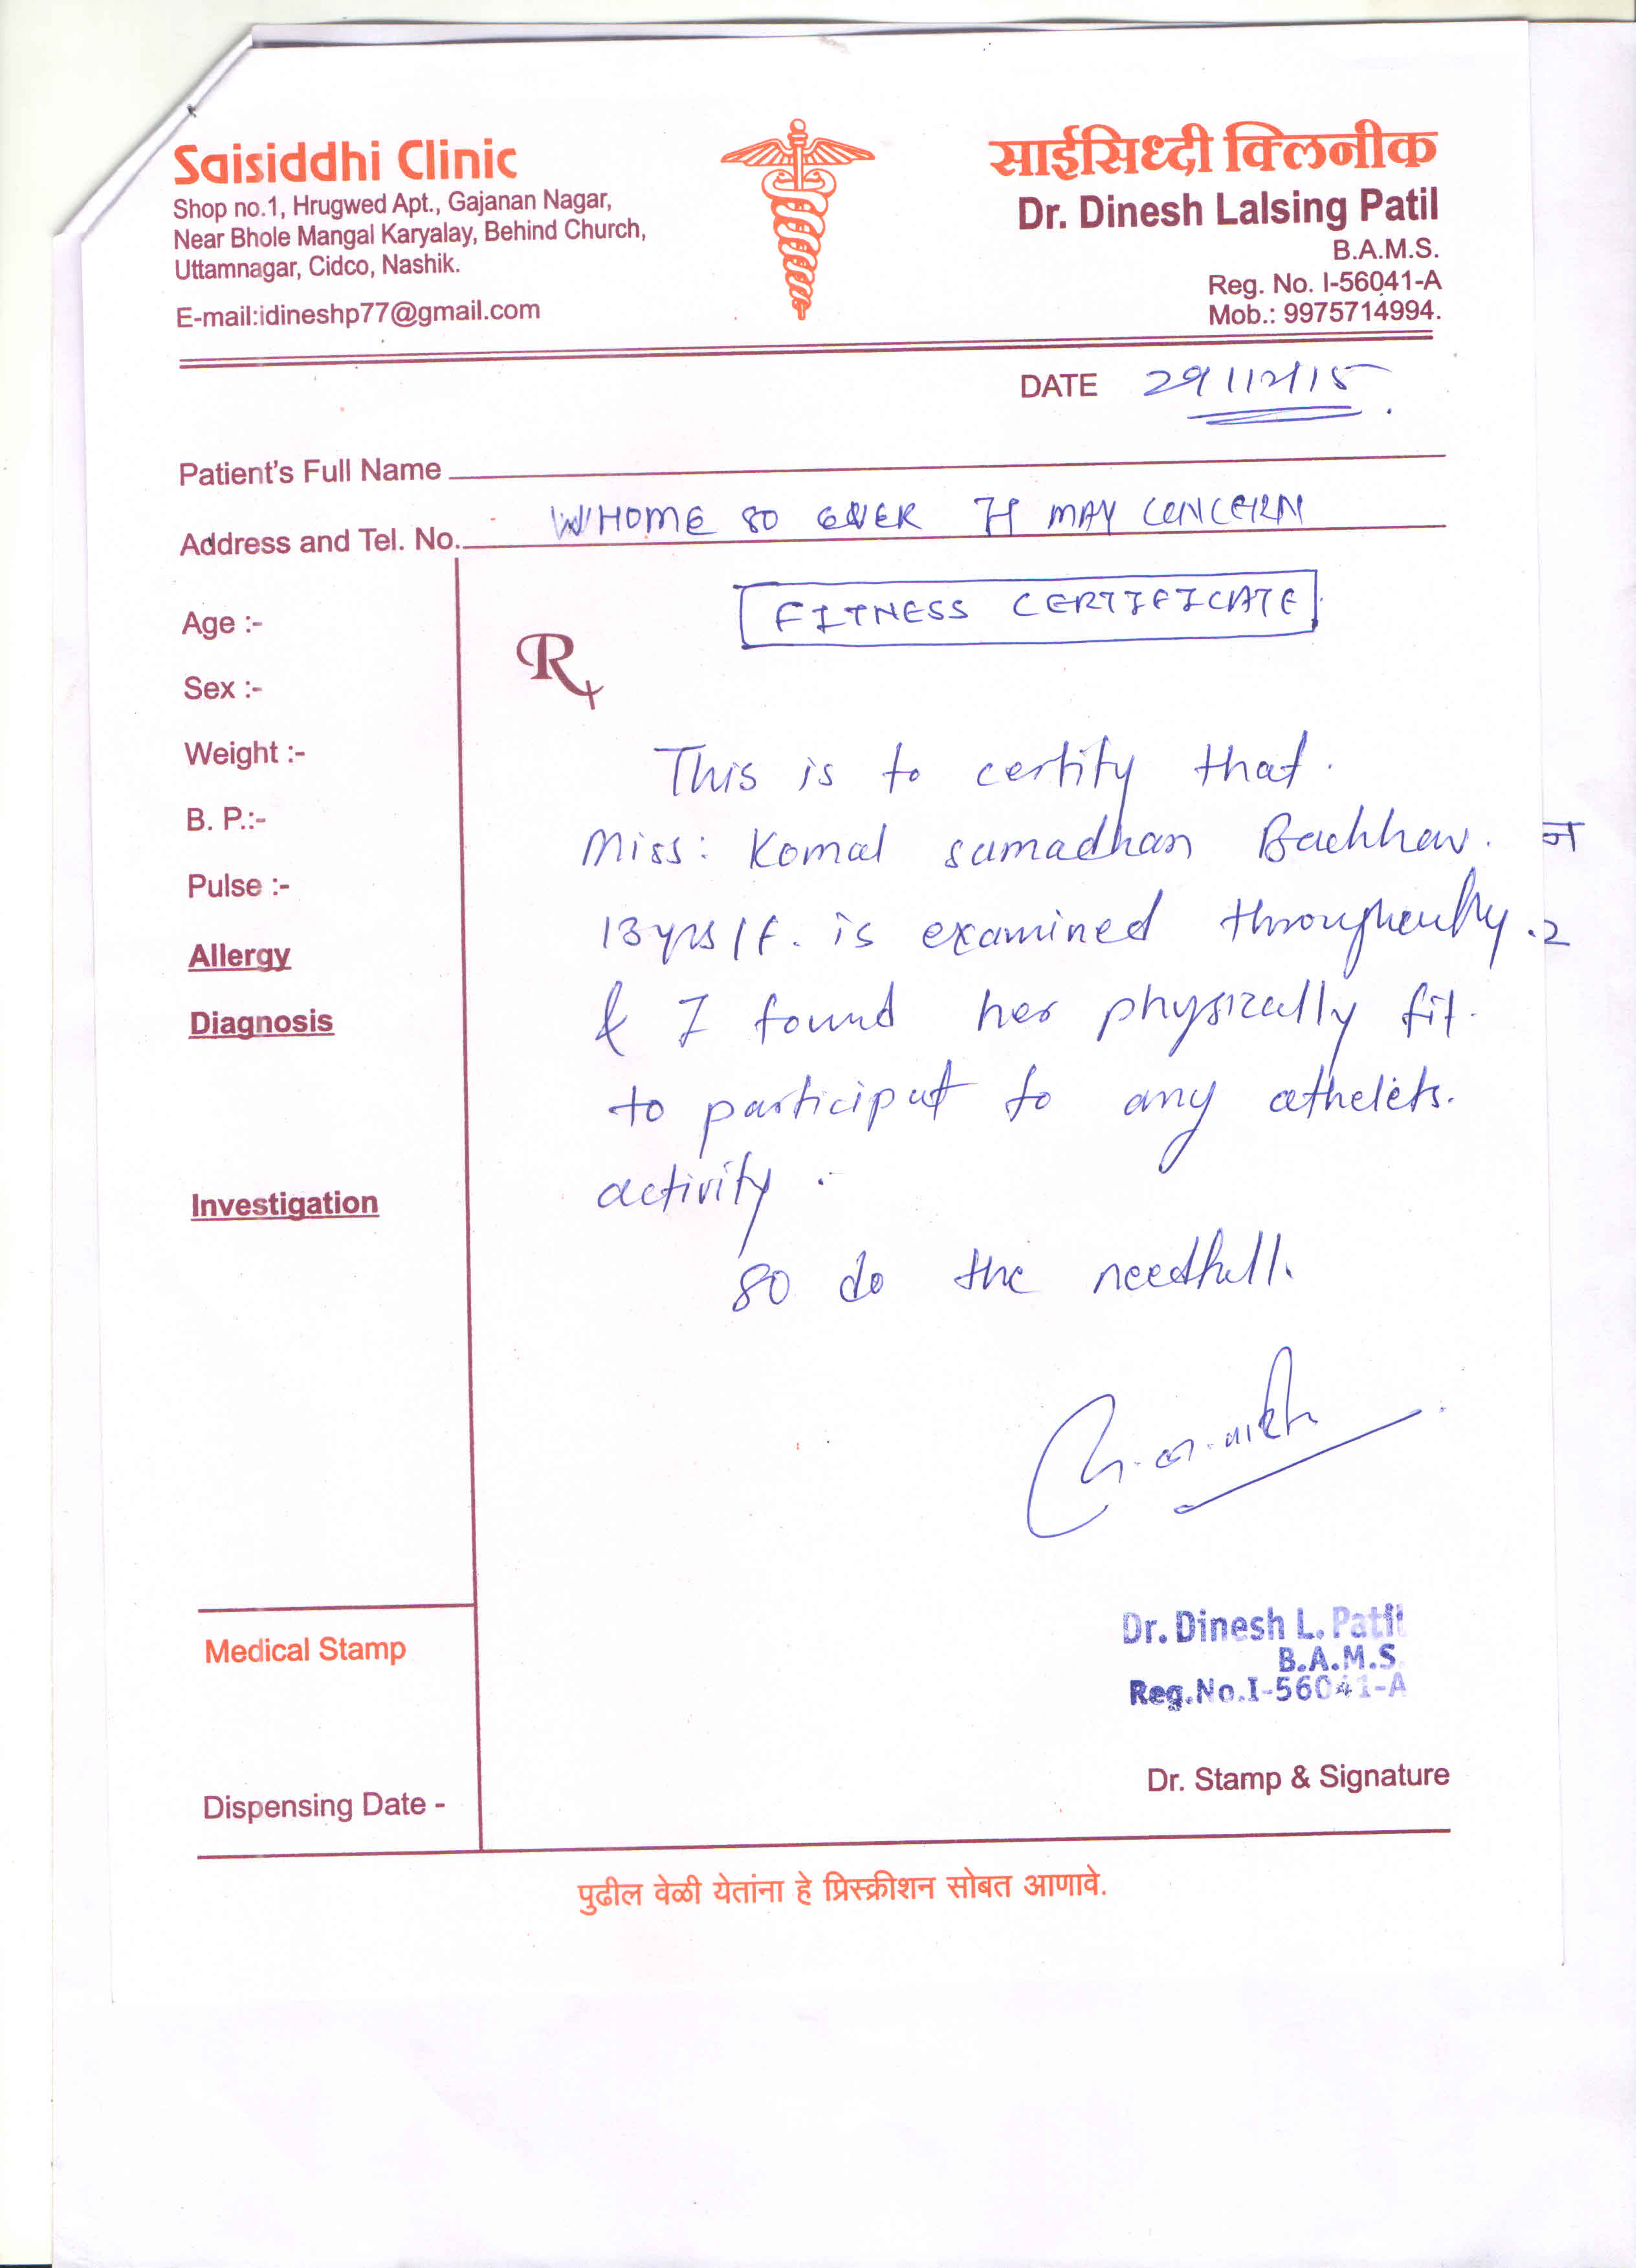 Saisiddhi Clinic
Shop no.1, Hrugwed Apt., Gajanan Nagar,
Near Bhole Mangal Karyalay, Behind Church,
Uttamnagar, Cidco, Nashik.
E-mail:idineshp77@gmail.com
साईसिध्दी क्लिनीक
Dr. Dinesh Lalsing Patil
B.A.M.S.
Reg. No. I-56041-A
Mob.: 9975714994.
DATE 29/12/15
Patient's Full Name
Address and Tel. No. WHOME SO EVER IT MAY CONCERN
FITNESS CERTIFICATE
Age :-
Sex :-
Weight :-
B. P.:-
Pulse :-
Allergy
Diagnosis
Investigation
Rx
This is to certify that.
Miss: Komal samadhan Bachhav.
13yrs/f. is examined
& I found her physically fit.
to participat to any athelets.
activity.
so do the needfull.
Dr. Dinesh L. Patil
B.A.M.S.
Reg.No.I-56041-A
Dr. Stamp & Signature
Medical Stamp
Dispensing Date -
पुढील वेळी येतांना हे प्रिस्क्रीशन सोबत आणावे.